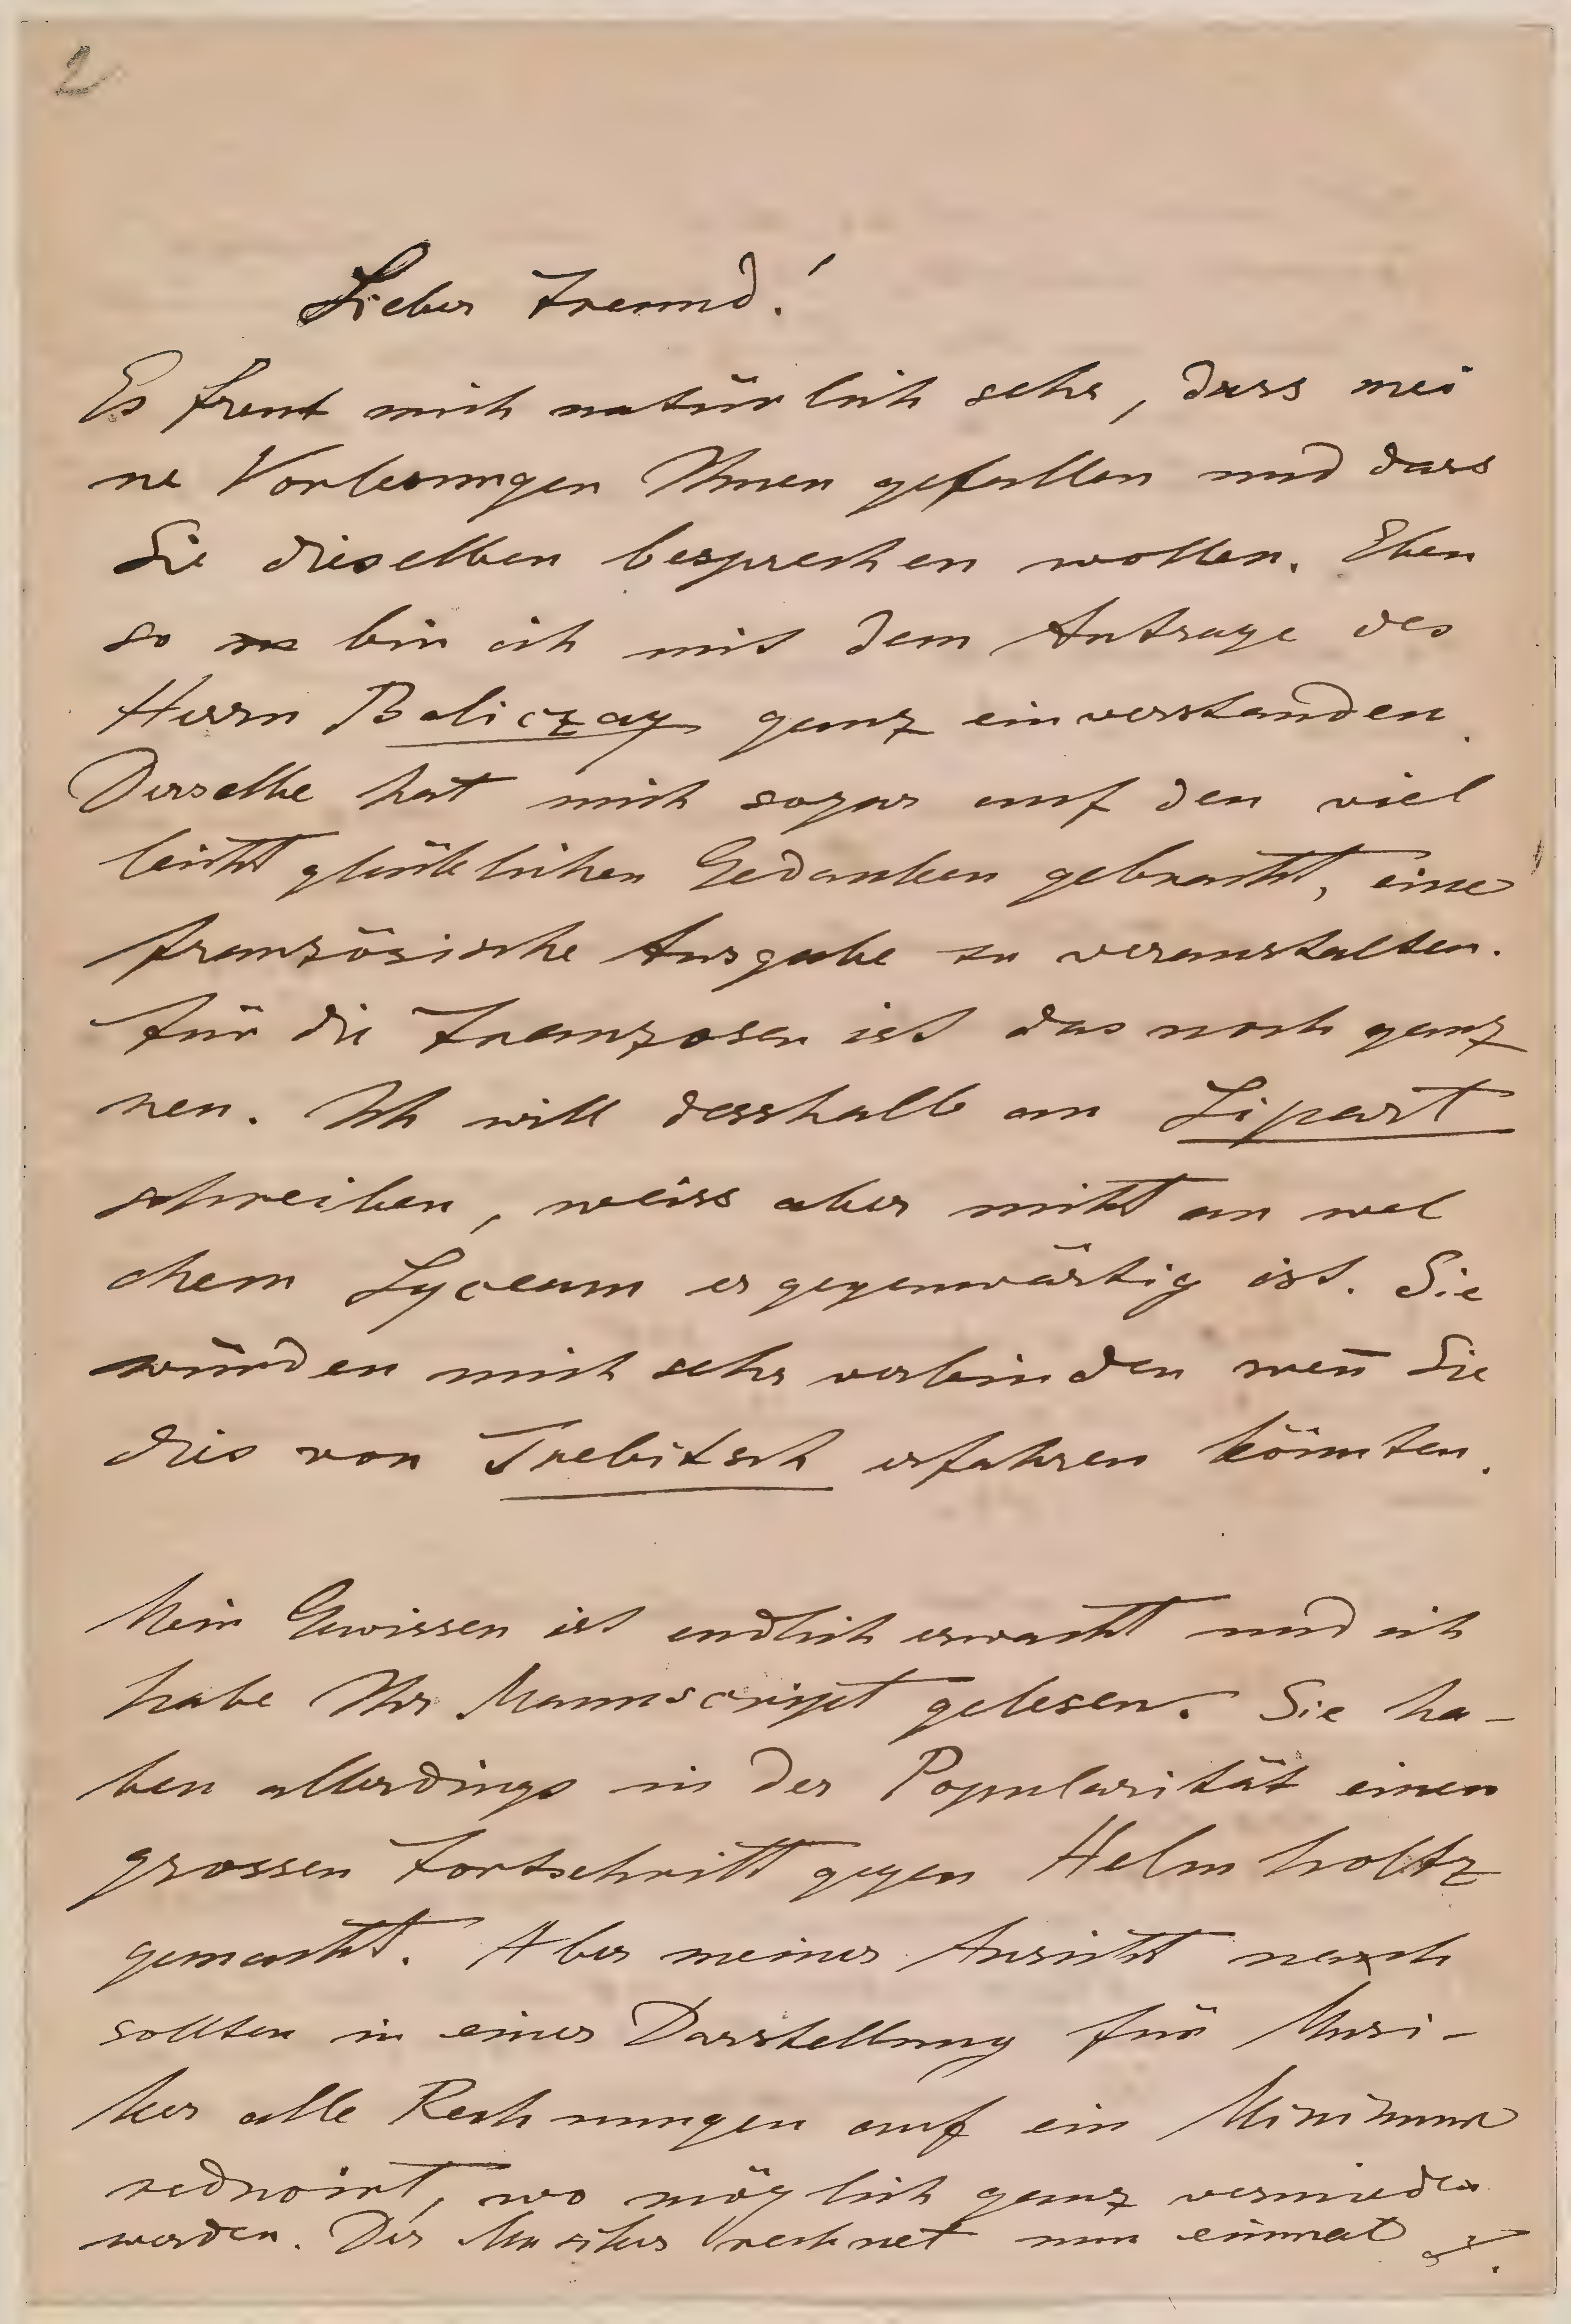 2
Lieber Freund!
Es freut mich natürlich sehr, dass mei
ne Vorlesungen Ihnen gefallen und dass
Sie dieselben besprechen wollen. Eben
so bin ich mit dem Antrage des
Herrn Beliczay ganz einverstanden.
Derselbe hat mich sogar auf den viel
leicht glücklichen Gedanken gebracht, eine
französische Ausgabe zu veranstalten.
Für die Franzosen ist das noch ganz
neu. Ich will desshalb an Lipart
schreiben, weiss aber nicht an wel
chem Lyceum er gegenwärtig ist. Sie
würden mich sehr verbinden wen̄ Sie
dies von Trebitsch erfahren könnten.
Mein Gewissen ist endlich erwacht und ich
habe Ihr Manuscript gelesen. Sie ha-
ben allerdings in der Popularität einen
grossen Fortschritt gegen Helmholtz
gemacht. Aber meiner Ansicht nach
sollten in einer Darstellung für Musi-
ker alle Rechnungen auf ein Minimum
reducirt, wo möglich ganz vermieden
werden. Der Musiker rechnet nun einmal